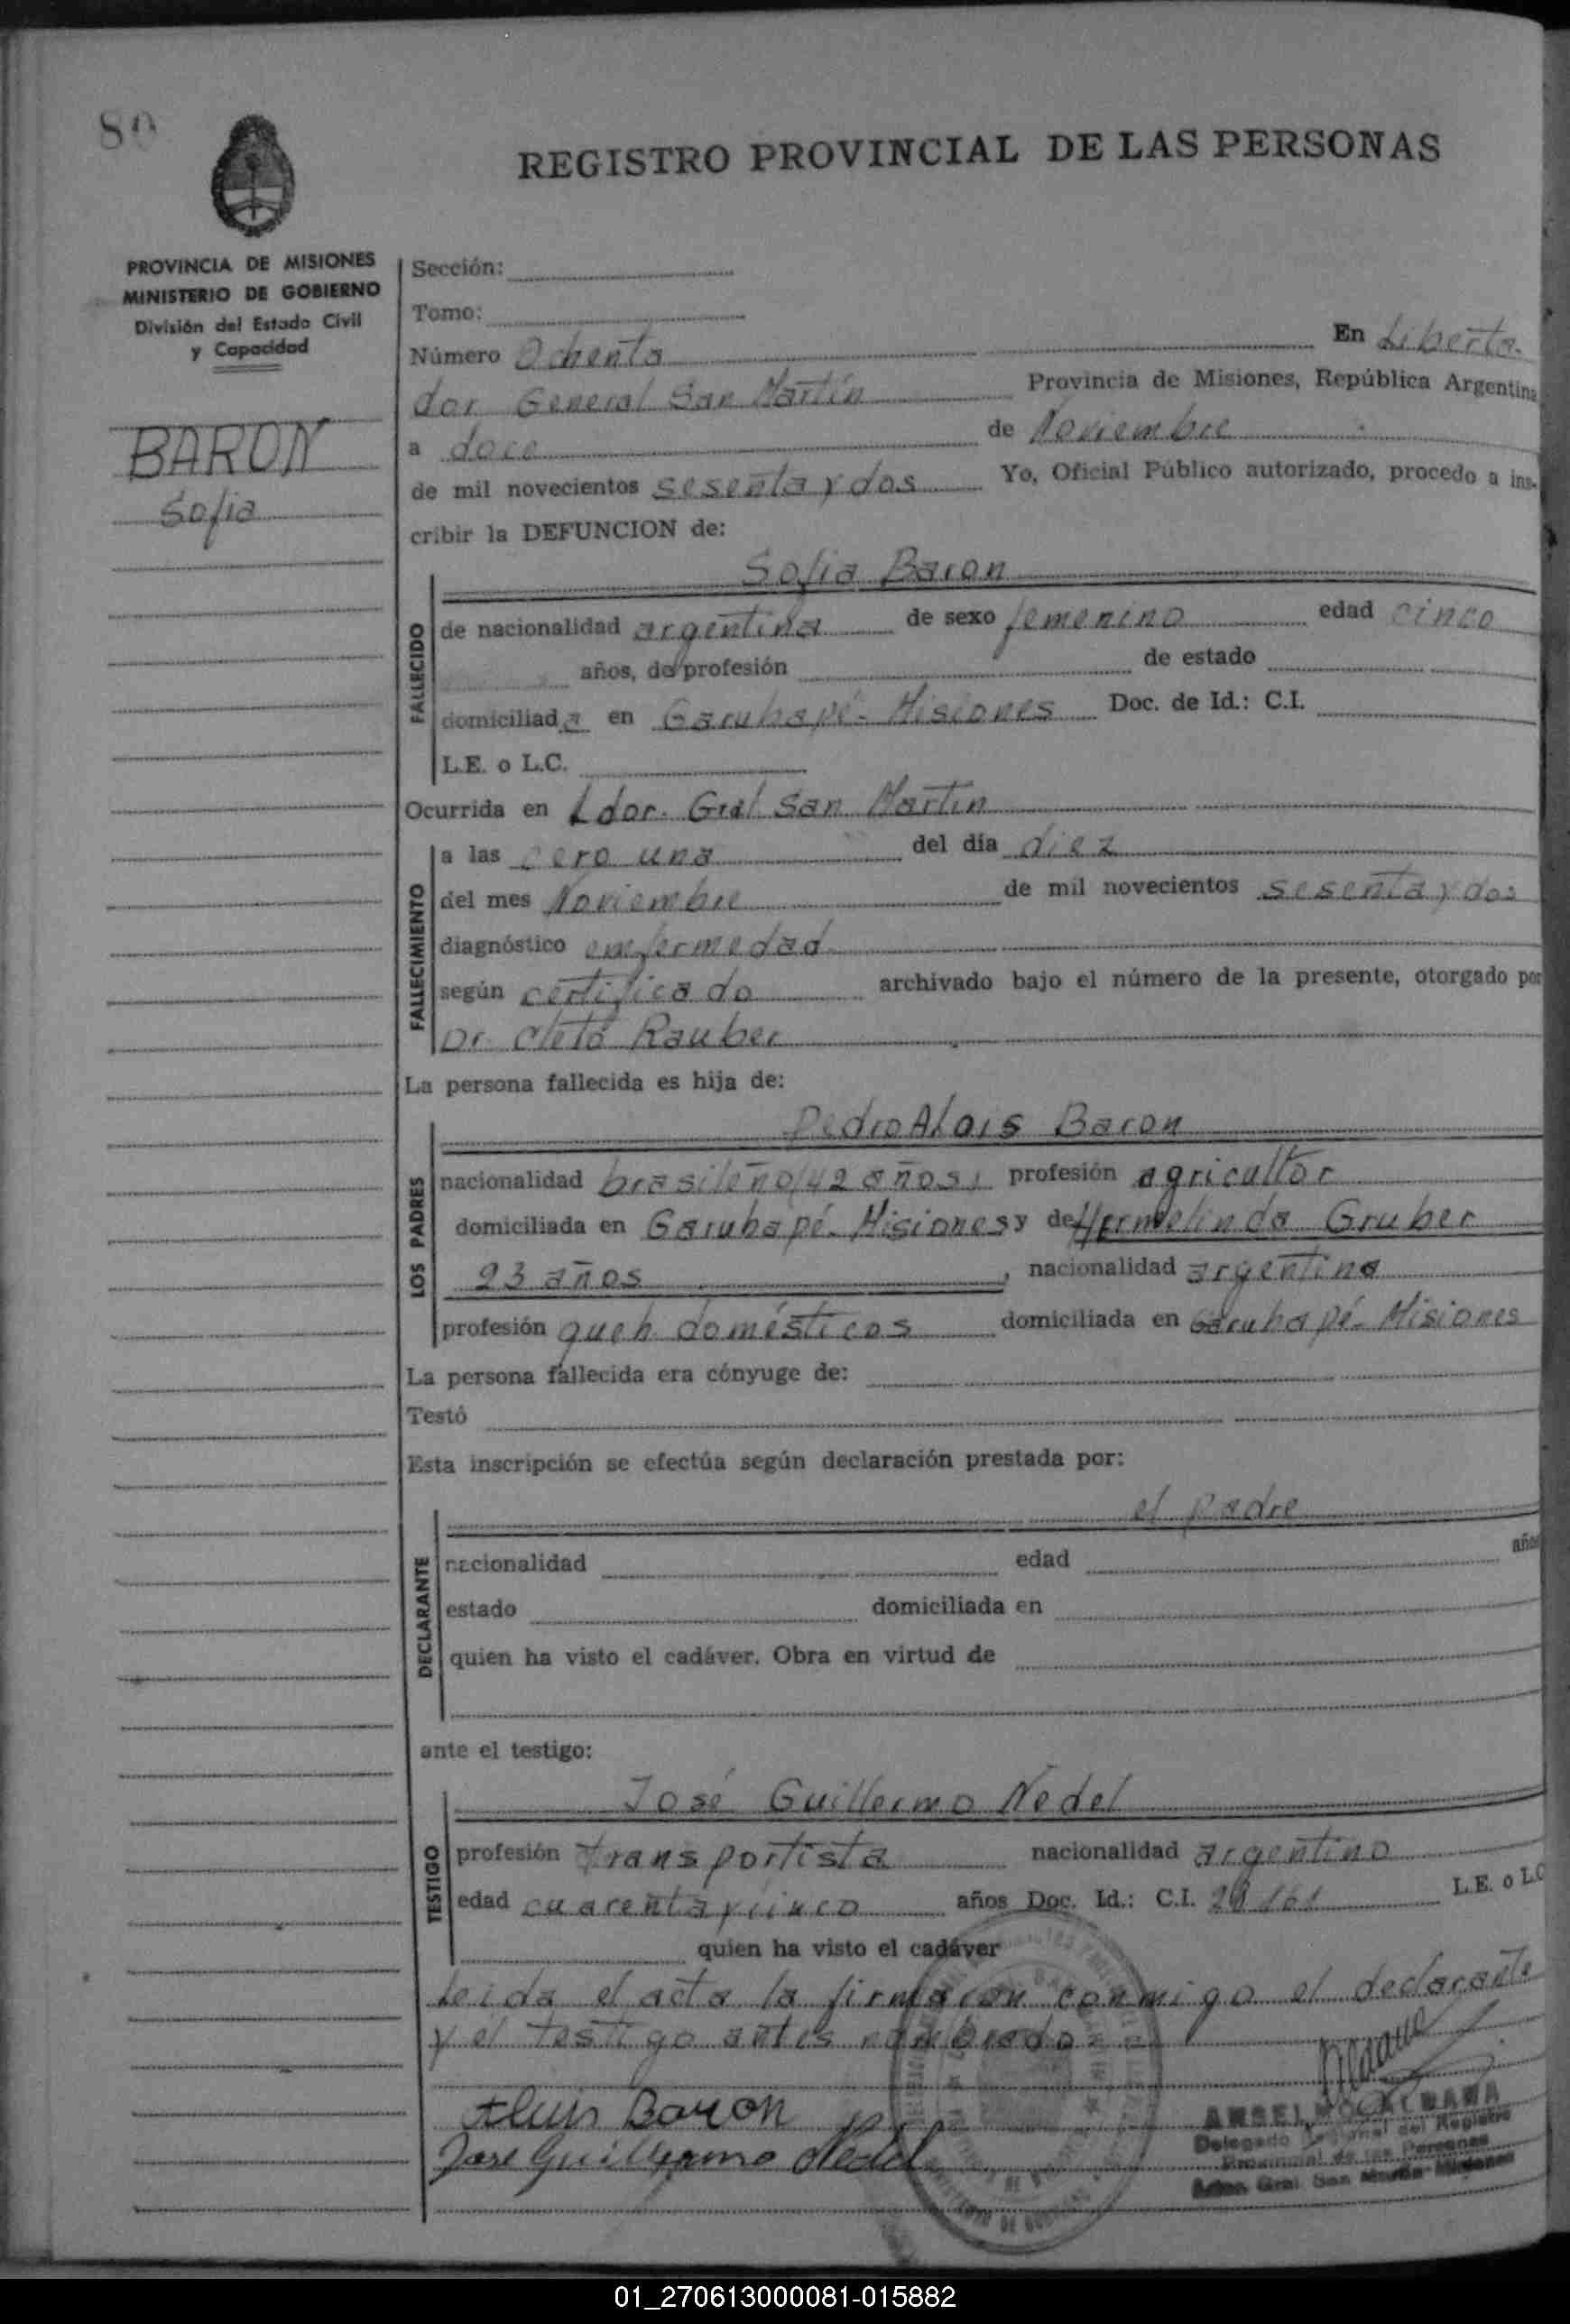 80
REGISTRO PROVINCIAL DE LAS PERSONAS
PROVINCIA DE MISIONES
MINISTERIO DE GOBIERNO
División del Estado Civil
y Capacidad
BARON
Sofia
Sección:
Tomo:
Número Ochenta En Liberta-
dor General San Martín Provincia de Misiones, República Argentina
a doce de Noviembre
de mil novecientos sesenta y dos Yo, Oficial Público autorizado, procedo a ins-
cribir la DEFUNCION de:
Sofia Baron
FALLECIDO
de nacionalidad argentina de sexo femenino edad cinco
años, de profesión de estado
domiciliada en Garuhapé - Misiones Doc. de Id.: C.I.
L.E. o L.C.
Ocurrida en Ldor. Gral San Martin
FALLECIMIENTO
a las cero una del día diez
del mes Noviembre de mil novecientos sesenta y dos
diagnóstico enfermedad
según certificado archivado bajo el número de la presente, otorgado por
Dr. Cleto Rauber
La persona fallecida es hija de:
Pedro Alois Baron
LOS PADRES
nacionalidad brasileño/42 años, profesión agricultor
domiciliada en Garuhapé - Misiones y de Hermelinda Gruber
23 años, nacionalidad argentina
profesión queh. domésticos domiciliada en Garuhapé - Misiones
La persona fallecida era cónyuge de:
Testó
Esta inscripción se efectúa según declaración prestada por:
el padre
DECLARANTE
nacionalidad edad años
estado domiciliada en
quien ha visto el cadáver. Obra en virtud de
ante el testigo:
José Guillermo Nedel
TESTIGO
profesión transportista nacionalidad argentino
edad cuarenta y cinco años Doc. Id.: C.I. L.E. o L.C
quien ha visto el cadáver
Leida el acta la firmaron conmigo el declarante
y el testigo antes nombrado
Aluis Baron
José Guillermo Nedel
ANSELMO ALBANA
Delegado Regional del Registro
Provincial de las Personas
Ldor. Gral. San Martín - Misiones
01_270613000081-015882